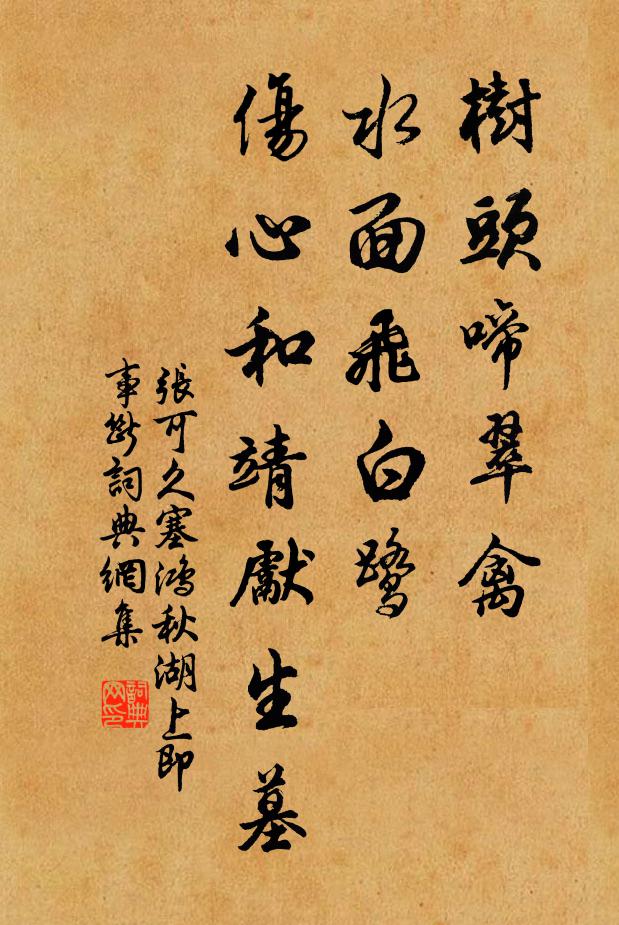 樹頭啼翠禽
水面飛白鷺
傷心和靖獻生墓
張可久塞鴻秋湖上即
事斷詞典網集
詞典
网印